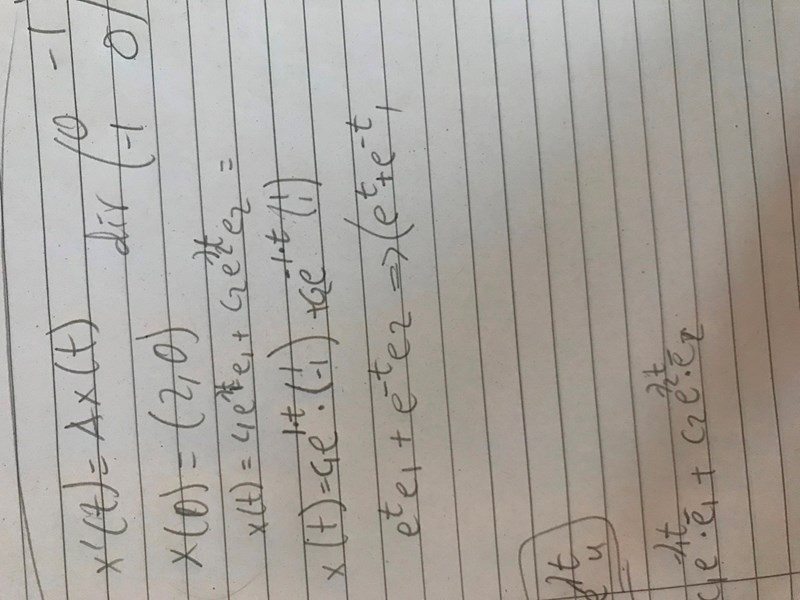 x'(t) = Ax(t) dir (0 -1
-1 0)
x(0) = (2,0)
x(t) = c₁e^λ₁t e₁ + c₂e^λ₂t e₂ =
x(t) = c₁e^1·t · (1 -1) + c₂e^-1·t (1 1)
e^t e₁ + e^-t e₂ => (e^t + e^-t,
e^λt u
c₁e^λ₁t · e₁ + c₂e^λ₂t · e₂